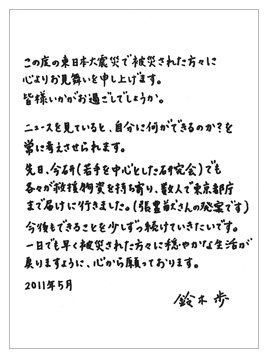 この度の東日本大震災で被災された方々に
心よりお見舞いを申し上げます。
皆様いかがお過ごしでしょうか。
ニュースを見ていると、自分に何ができるのか?を
常に考えさせられます。
先日、今研(若手を中心とした研究会)でも
各々が救援物資を持ち寄り、数人で東京都庁
まで届けに行きました。(張豊猷さんの発案です)
今後もできることを少しずつ続けていきたいです。
一日でも早く被災された方々に穏やかな生活が
戻りますように、心から願っております。
2011年5月
鈴木歩